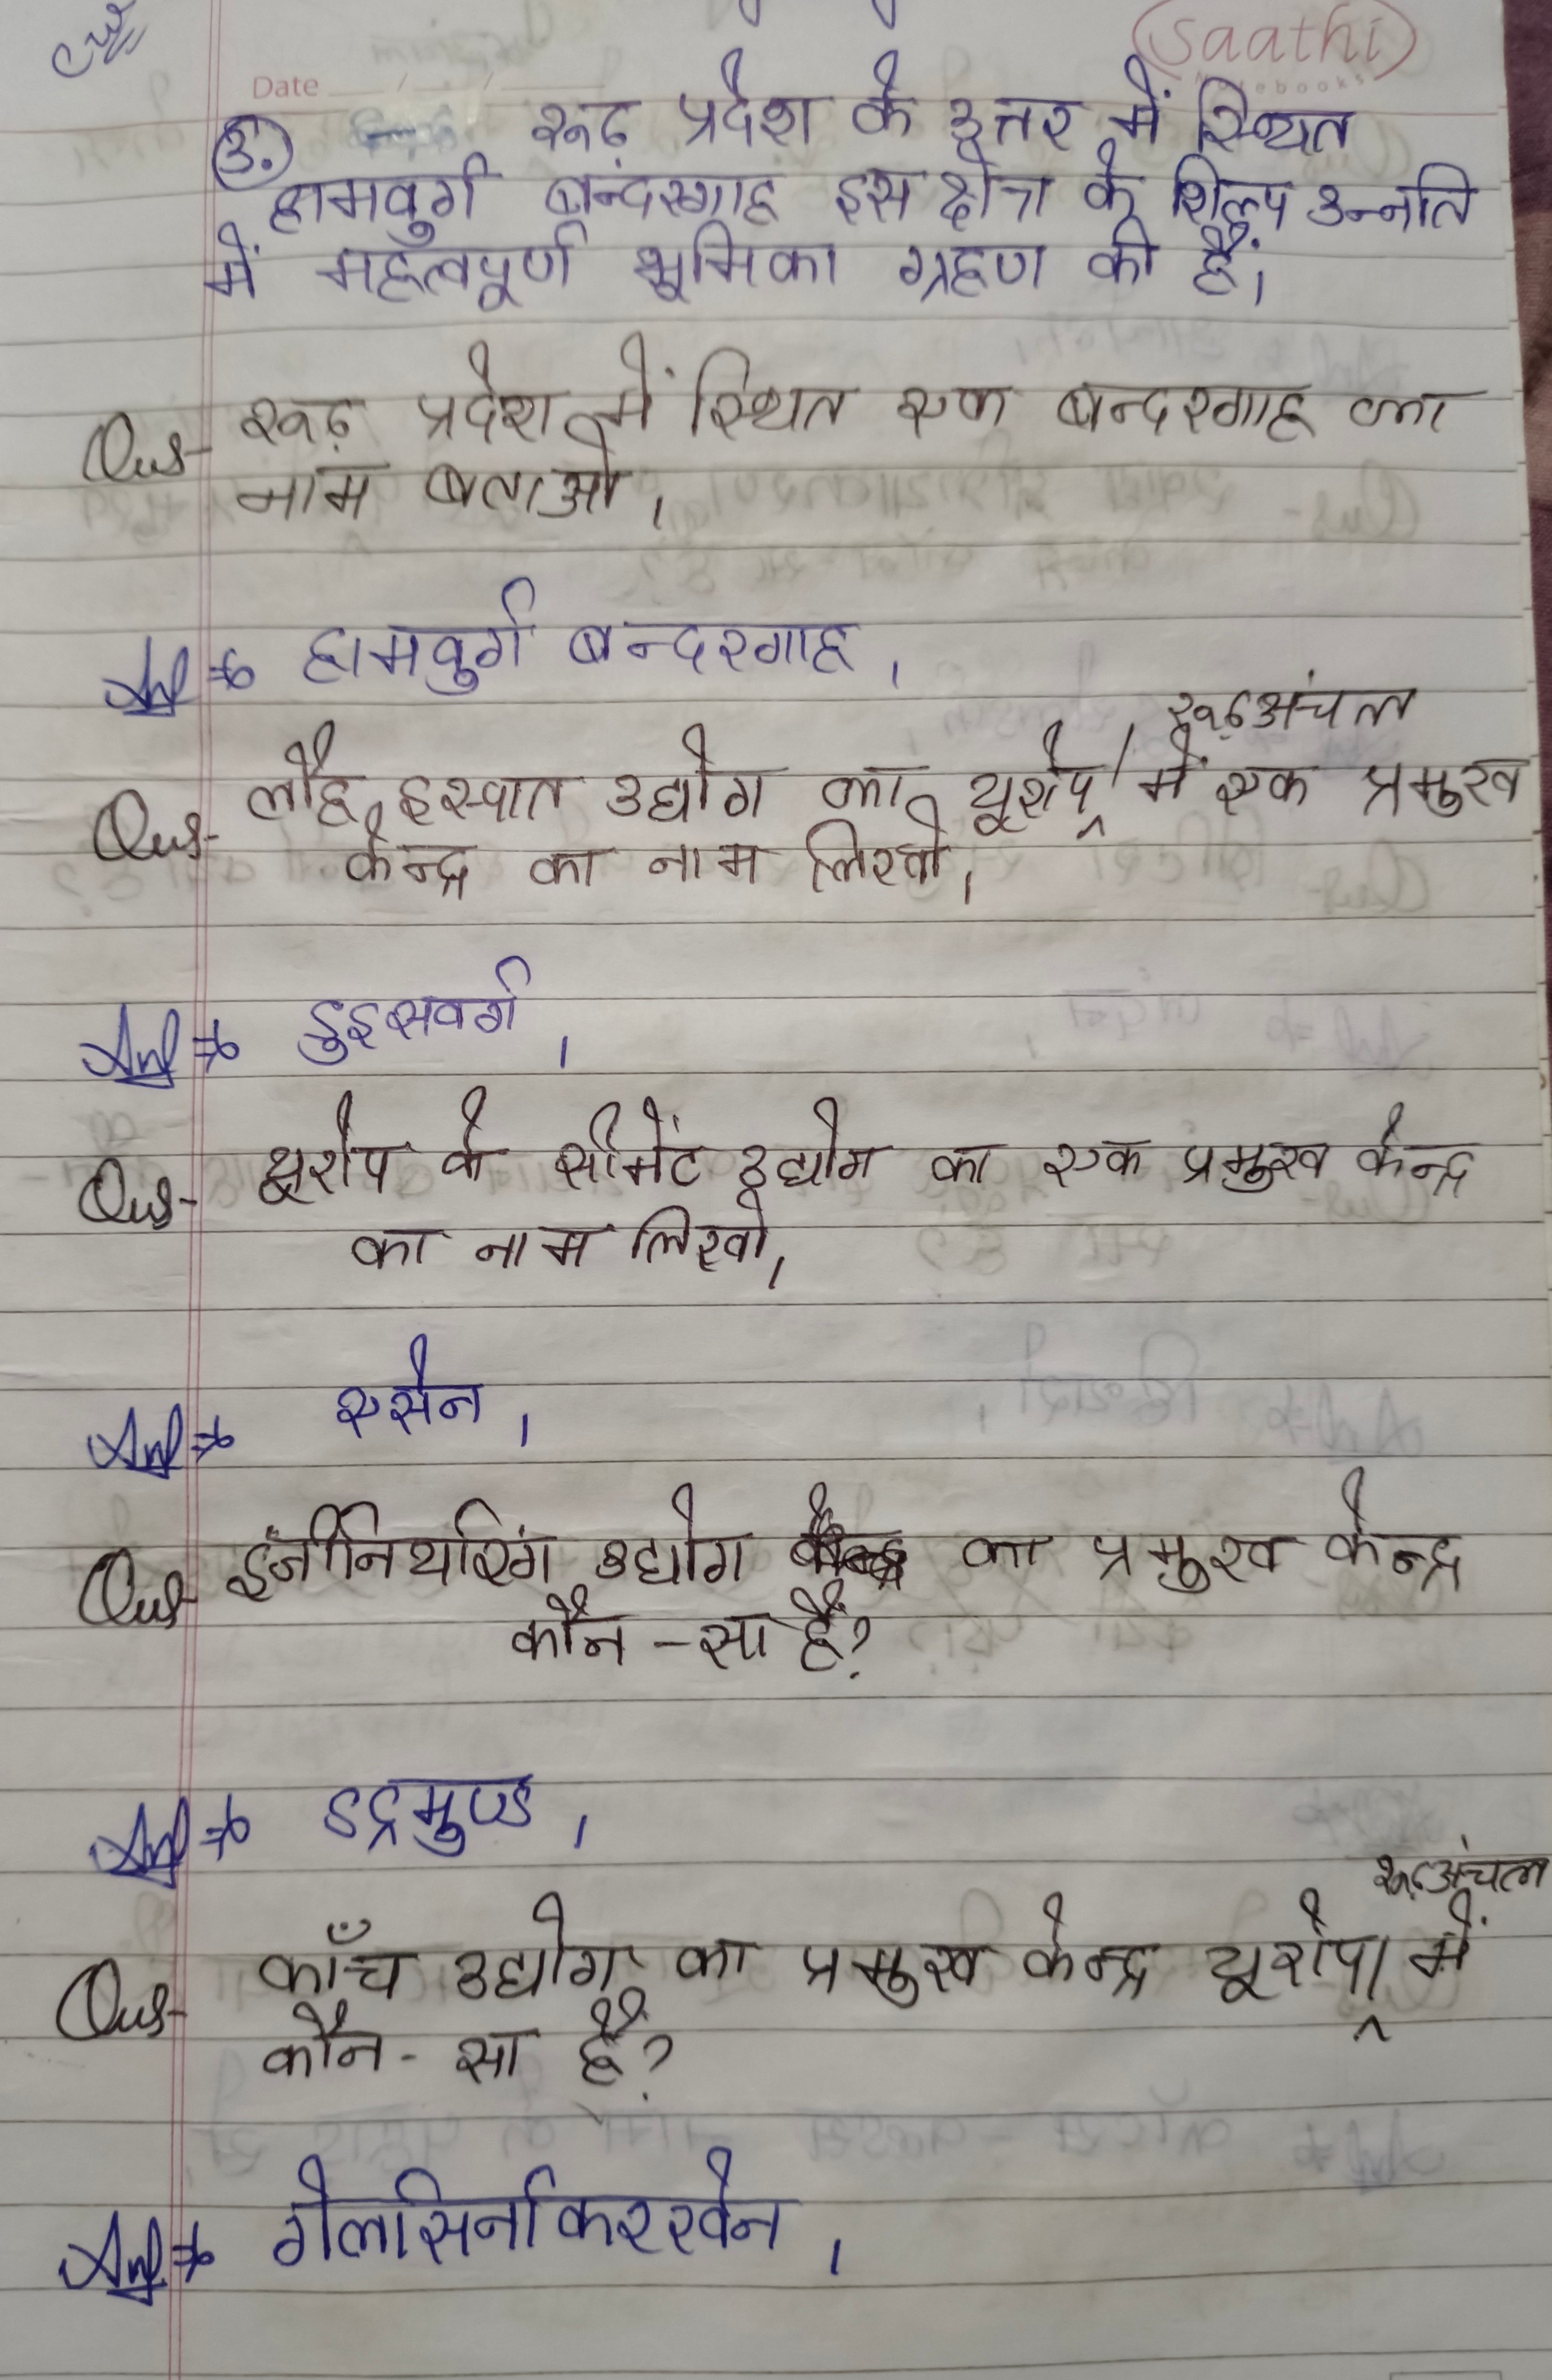 C.W
saathi
Notebooks
Date __/__/__
③. रूढ़ प्रदेश के उत्तर में स्थित
हामवुर्ग बन्दरगाह इस क्षेत्र के शिल्प उन्नति
में महत्वपूर्ण भूमिका ग्रहण की है।
Qus- रूढ़ प्रदेश में स्थित एक बन्दरगाह का
नाम बताओ।
Ans⇒ हामवुर्ग बन्दरगाह।
रूढ़अंचल
Qus- लौह इस्पात उद्योग का यूरोप/ में एक प्रमुख
केन्द्र का नाम लिखो।
Ans⇒ डुइसवर्ग।
Qus- यूरोप के सीमेंट उद्योग का एक प्रमुख केन्द्र
का नाम लिखो।
Ans⇒ एसेन।
Qus- इंजीनियरिंग उद्योग का प्रमुख केन्द्र
कौन-सा है?
Ans⇒ डट्रमुण्ड।
रूढ़अंचल
Qus- काँच उद्योग का प्रमुख केन्द्र यूरोप/ में
कौन-सा है?
Ans⇒ गेलसिनकिरखेन।